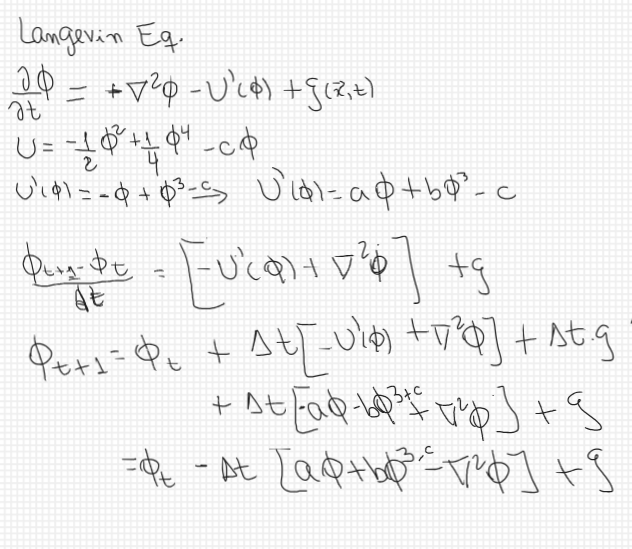 Langevin Eq.
∂ϕ/∂t = +∇²ϕ - U'(ϕ) + ξ(x⃗,t)
U = -1/2 ϕ² + 1/4 ϕ⁴ - cϕ
U'(ϕ) = -ϕ + ϕ³ - c ⇒ U'(ϕ) = aϕ + bϕ³ - c
(ϕt+1 - ϕt)/Δt = [-U'(ϕ) + ∇²ϕ] + ξ
ϕt+1 = ϕt + Δt[-U'(ϕ) + ∇²ϕ] + Δt·ξ
+ Δt[-aϕ - bϕ³ + c + ∇²ϕ] + ξ
= ϕt - Δt [aϕ + bϕ³ - c - ∇²ϕ] + ξ